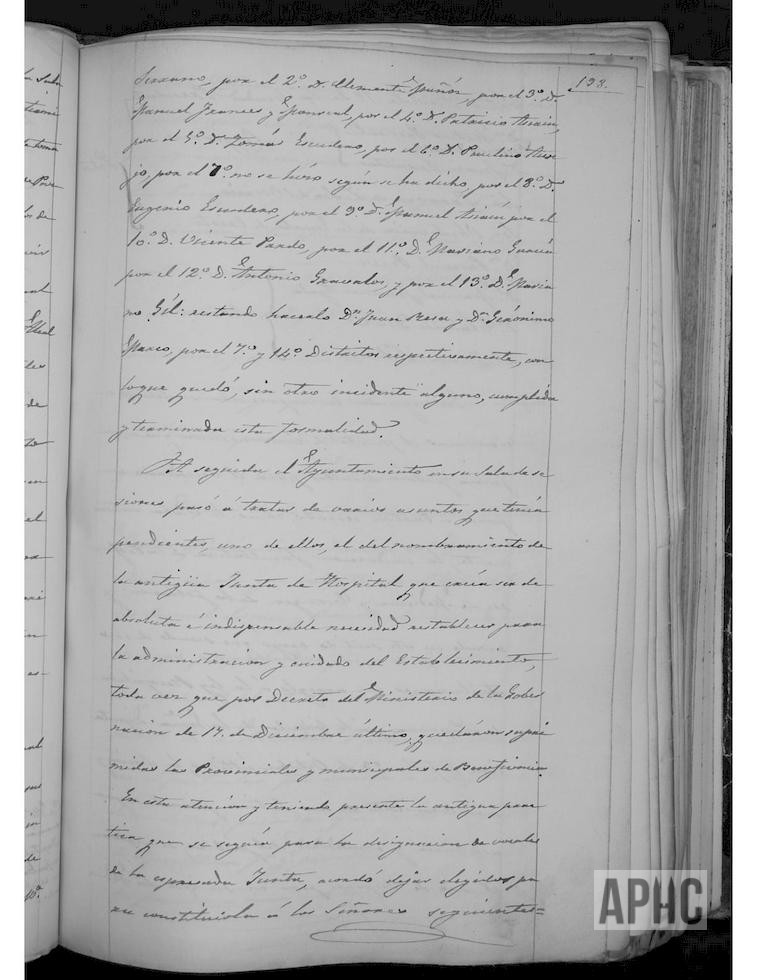 198.
Serrano, por el 2º. D. Clemente Muñóz, por el 3º. D.
Manuel Jeanees y Monreal, por el 4º. D. Patricio Asiain,
por el 5º. Dn. Tomás Escudero, por el 6º. D. Paulino Ase-
jo, por el 7º. no se hizo según se ha dicho, por el 8º. D.
Eugenio Escudero, por el 9º. Dn. Manuel Asiain por el
10º. D. Vicente Pardo, por el 11º. D. Mariano García
por el 12º. D. Antonio Gravalos, y por el 13º. D. Maria
no Gil: restando hacerlo Dn. Juan Resa y Dn. Gerónimo
Marco, por el 7º. y 14º. Distritos respectivamente, con
lo que quedó, sin otro incidente alguno, cumplida
y terminada esta formalidad.
A seguida el Ayuntamiento en su Sala de se
siones pasó á tratar de varios asuntos que tenía
pendientes, uno de ellos, el del nombramiento de
la antigüa Junta de Hospital que creía ser de
absoluta é indispensable necesidad restablecer para
la administracion y cuidado del Establecimiento,
toda vez que por Decreto del Ministerio de la Gober
nación de 17. de Diciembre último, quedaron supri
midas las Provinciales y municipales de Beneficencia
En esta atencion y teniendo presente la antigua prac
tica que se seguía para la designacion de vocales
de la espresada Junta, acordó dejar elegidos pa
ra constituirla á los Señores siguientes=
APHC